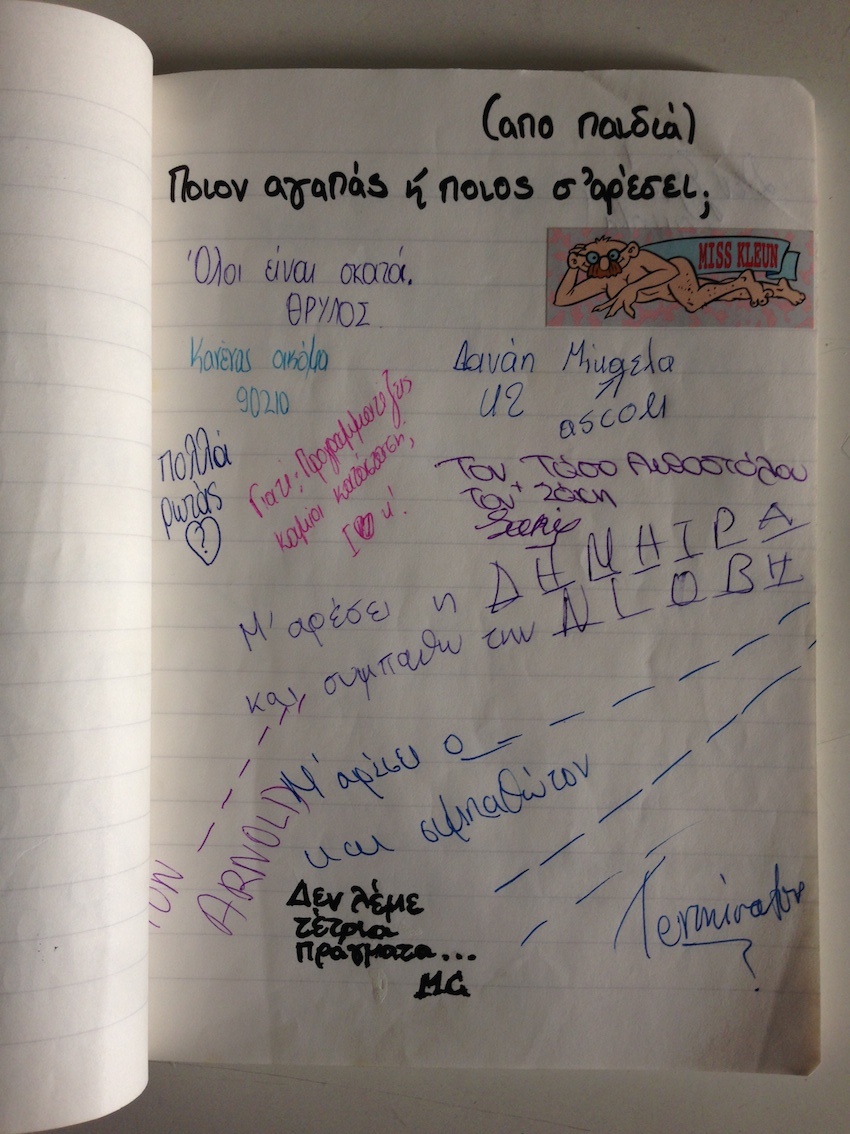 (απο παιδιά)
Ποιον αγαπάς ή ποιος σ'αρέσει;
MISS KLEUN
Όλοι είναι σκατά.
ΘΡΥΛΟΣ
Κανένας ακόμα
90210
Δανάη Μικαελα
U2
ascom
πολλά
ρωτάς
?
Γιατί; Προγραμματίζεις
καμιοι κατάσταση;
I u!
Τον Τάσο
Τον Σάκη
Sakis
Μ' αρέσει η ΔΗΜΗΤΡΑ
και συμπαθώ την
Μ' αρέσει ο
και συμπαθώ τον
ΤΟΝ
ARNOLD
Δεν λέμε
τέτρια
πράγματα...
M.C
Terminator
?